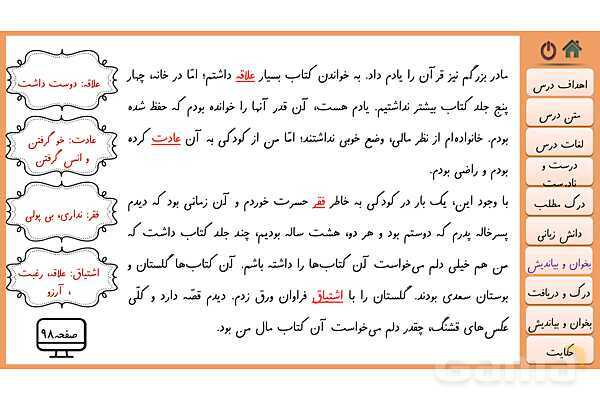 مادر بزرگم نیز قرآن را یادم داد. به خواندن کتاب بسیار علاقه داشتم؛ امّا در خانه، چهار
پنج جلد کتاب بیشتر نداشتیم. یادم هست، آن قدر آنها را خوانده بودم که حفظ شده
بودم. خانواده‌ام از نظر مالی، وضع خوبی نداشتند؛ امّا من از کودکی به آن عادت کرده
بودم و راضی بودم.
با وجود این، یک بار در کودکی به خاطر فقر حسرت خوردم و آن زمانی بود که دیدم
پسرخاله پدرم که دوستم بود و هر دو، هشت ساله بودیم، چند جلد کتاب داشت که
من هم خیلی دلم می‌خواست آن کتاب‌ها را داشته باشم. آن کتاب‌ها گلستان و
بوستان سعدی بودند. گلستان را با اشتیاق فراوان ورق زدم. دیدم قصّه دارد و کلّی
عکس‌های قشنگ، چقدر دلم می‌خواست آن کتاب مال من بود.
علاقه: دوست داشت
عادت: خو گرفتن
و انس گرفتن
فقر: نداری، بی پولی
اشتیاق: علاقه، رغبت
، آرزو
صفحه۹۸
اهداف درس
متن درس
لغات درس
درست و
نادرست
درک مطلب
دانش زبانی
بخوان و بیاندیش
درک و دریافت
بخوان و بیاندیش
حکایت
Gama